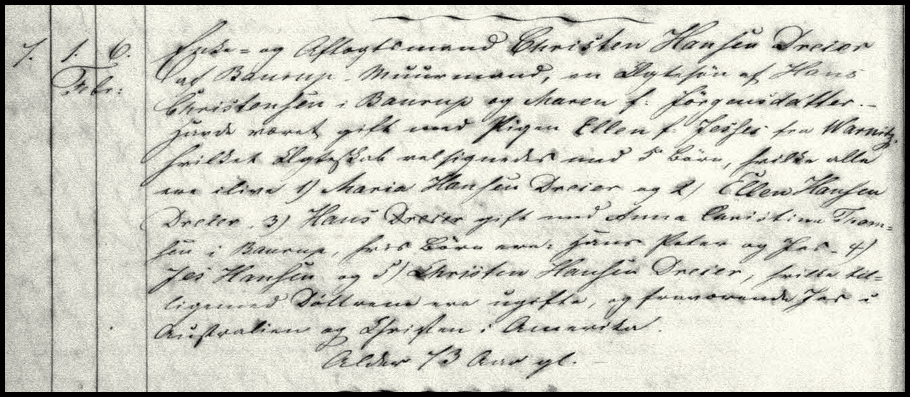 7. 1. 6. Enke- og Aftægtsmand Christen Hansen Dreier
Febr: af Baurup, Muurmand, en Ægtesøn af Hans
Christensen i Baurup og Maren f: Jörgensdatter. -
Havde været gift med Pigen Ellen f. Jesses fra Warnitz,
hvilket Ægteskab velsignedes med 5 Börn, hvilke alle
ere ilive 1) Maria Hansen Dreier og 2) Ellen Hansen
Dreier, 3) Hans Dreier gift med Anna Christina Thom=
sen i Baurup, hvis Börn ere: Hans Peter og Jes. 4)
Jes Hansen og 5) Christen Hansen Dreier, hvilke til=
ligemed Döttrene ere ugifte, og fraværende Jes i
Australien og Christen i Amerika.
Alder 73 Aar gl. -